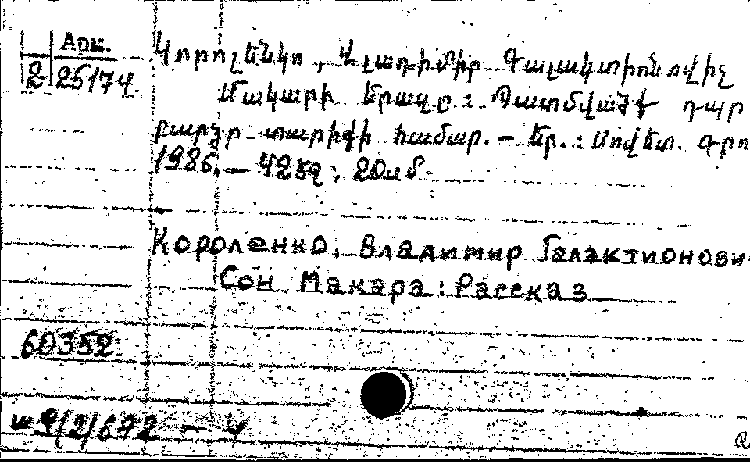 Арм.
2 25174
Կորոլենկո, Վլադիմիր Գալակտիոնովիչ
Մակարի երազը: Պատմվածք դպր
բարձր տարիքի համար. – Եր.: Սովետ. գրո
1986. – 42 էջ; 20 սմ
Короленко, Владимир Галактионови
Сон Макара: Рассказ
60352